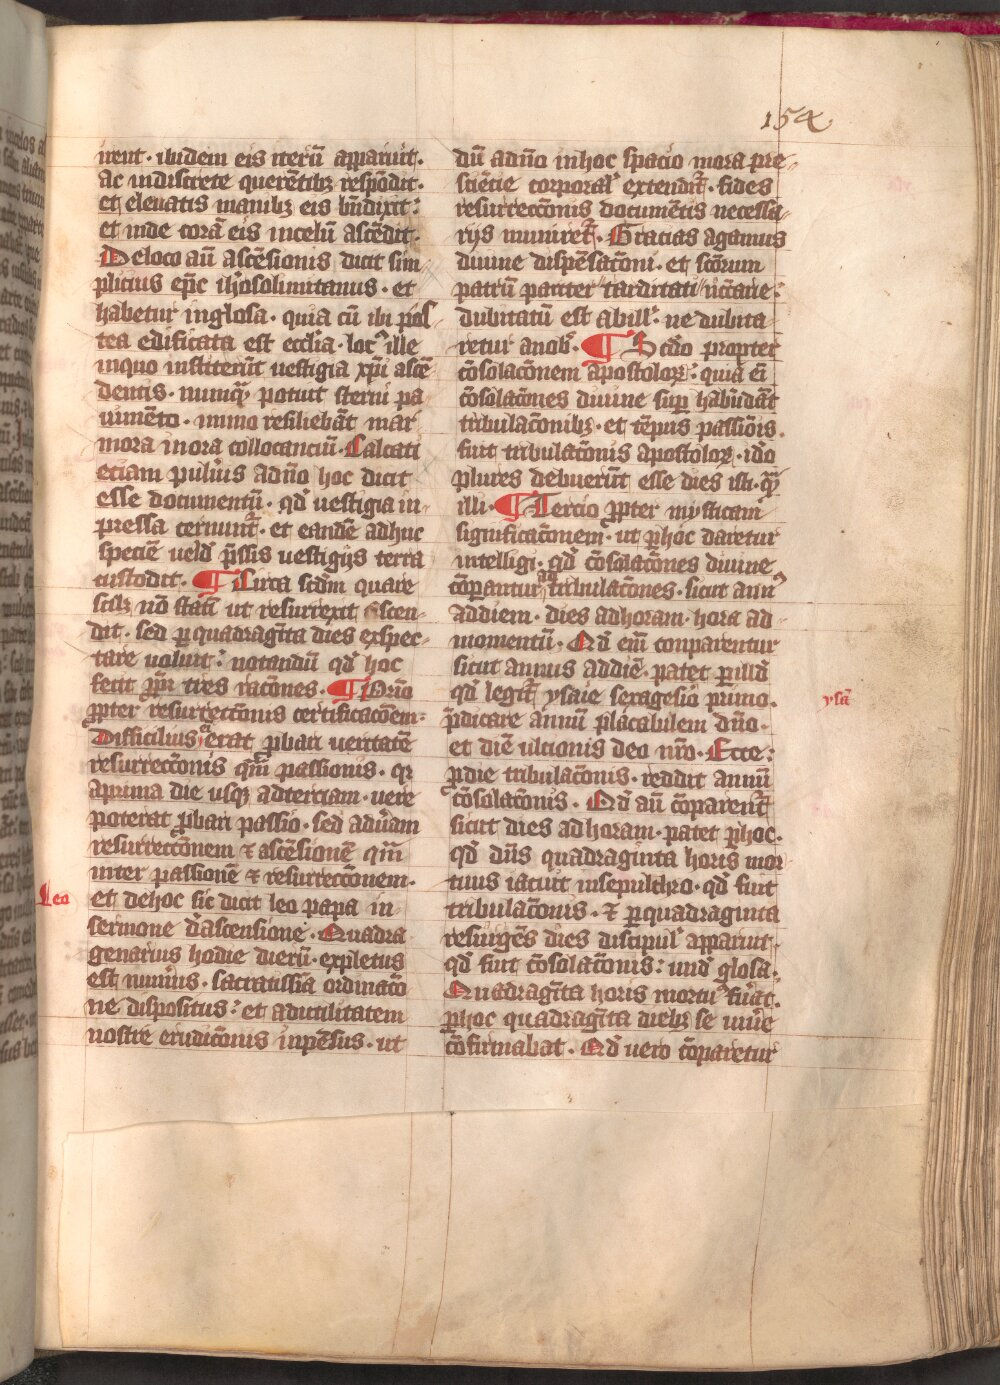 154
irent · ibidem eis iterū apparuit·
ac indiscrete querētibꝫ respōdit·
et eleuatis manibꝫ eis bn̄dixit:
et inde corā eis incelū ascēdit·
De loco aū ascēsionis dicit sim
plicius ep̄c ih̓osolimitanus · et
habetur inglosa · quia cū ibi pos
tea edificata est eccl̓ia · locꝰ ille
inquo institerūt uestigia xp̄i ascē
dentis · nunqᷓ potuit sterni pa
uimēto · immo resiliebāt mar
mora in ora collocanciū · Calcati
etiam puluis ad n̄o hoc dicit
esse documentū · qd̓ uestigia in
pressa cernunt̄ · et eandē adhuc
speciē ueld̓ p̄ssis uestigijs terra
custodit · ¶ Circa scd̄m quare
scilꝫ nō statī ut resurrexit ascen
dit · sed ꝑ quadragīta dies expec
tare uoluit : notandū qd̓ hoc
fecit ꝓp̄t tres racōnes · ¶ Primo
ꝓpter resurrectōnis certificacōem :
Difficilius erat ꝓbari ueritatē
resurrectōnis qm̄ passionis · qr
a prima die usqꝫ ad terciam · uere
poterat ꝓbari passio · sed ad uīam
resurrectōnem ⁊ ascēsionē qm̄
inter passionē ⁊ resurrectōnem ·
Leo
et de hoc sic dicit leo papa in
sermone d̓ ascensione · Quadra
genarius hodie dierū · expletus
est num̓us · sacratissīa ordinacō
ne dispositus : et ad utilitatem
nostre erudicōnis inpēsus · ut
dū ad n̄o in hoc spacio mora pre
sēcie corporal̓ extendit̄ · fides
resurrectōnis documētis necessa
rijs muniret̄ · Gracias agamus
diuine dispēsacōni · et sc̄orum
patrū pariter tarditati n̄ctarie :
dubitatū est ab ill̓ · ne dubita
retur a nob̓ · ¶ Scd̄o propter
cōsolacōnem apostolorꝫ : quia ei
cōsolacōnes diuine suꝑ habūdāt
tribulacōnibꝫ · et tēpus passiōis
fuit tribulacōnis apostolorꝫ · id̓o
plures debuerūt esse dies isti · qᷓ
illi · ¶ Tercio ꝓpter mysticam
significacōnem · ut ꝑ hoc daretur
intelligi · qd̓ cōsolacōnes diuine
cōparantur ad tribulacōnes · sicut annꝰ
ad diem · dies ad horam · hora ad
momentū · Qd̓ em̄ conparentur
sicut annus ad diē · patet ꝑ illd̓
ysa
qd̓ legit̄ ysaie sexagesīo primo ·
p̄dicare annū placabilem dn̄o ·
et diē ulcionis deo nr̄o · Ecce :
ꝓ die tribulacōnis · reddit annū
cōsolacōnis · Qd̓ aū cōparent̄
sicut dies ad horam · patet ꝑ hoc ·
qd̓ dn̄s quadraginta horis mor
tuus iacuit in sepulchro · qd̓ fuit
tribulacōnis · ⁊ ꝑ quadraginta
resurgēs dies discipul̓ apparuit ·
qd̓ fuit cōsolacōnis : und̓ glosa ·
Quadragīta horis mortuꝰ fu̓at ·
ꝑ hoc quadragīta diebꝫ se uiuē
cōfirmabat · Qd̓ uero cōparetur